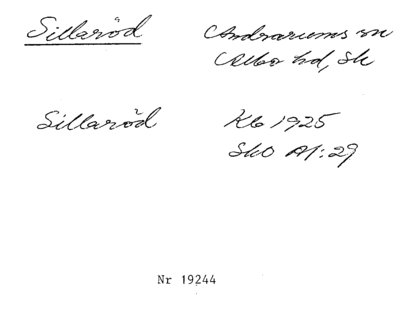 Sillaröd Andrarums sn
Albo hd, Sk
Sillaröd Kb 1925
SkO A1:29
Nr 19244